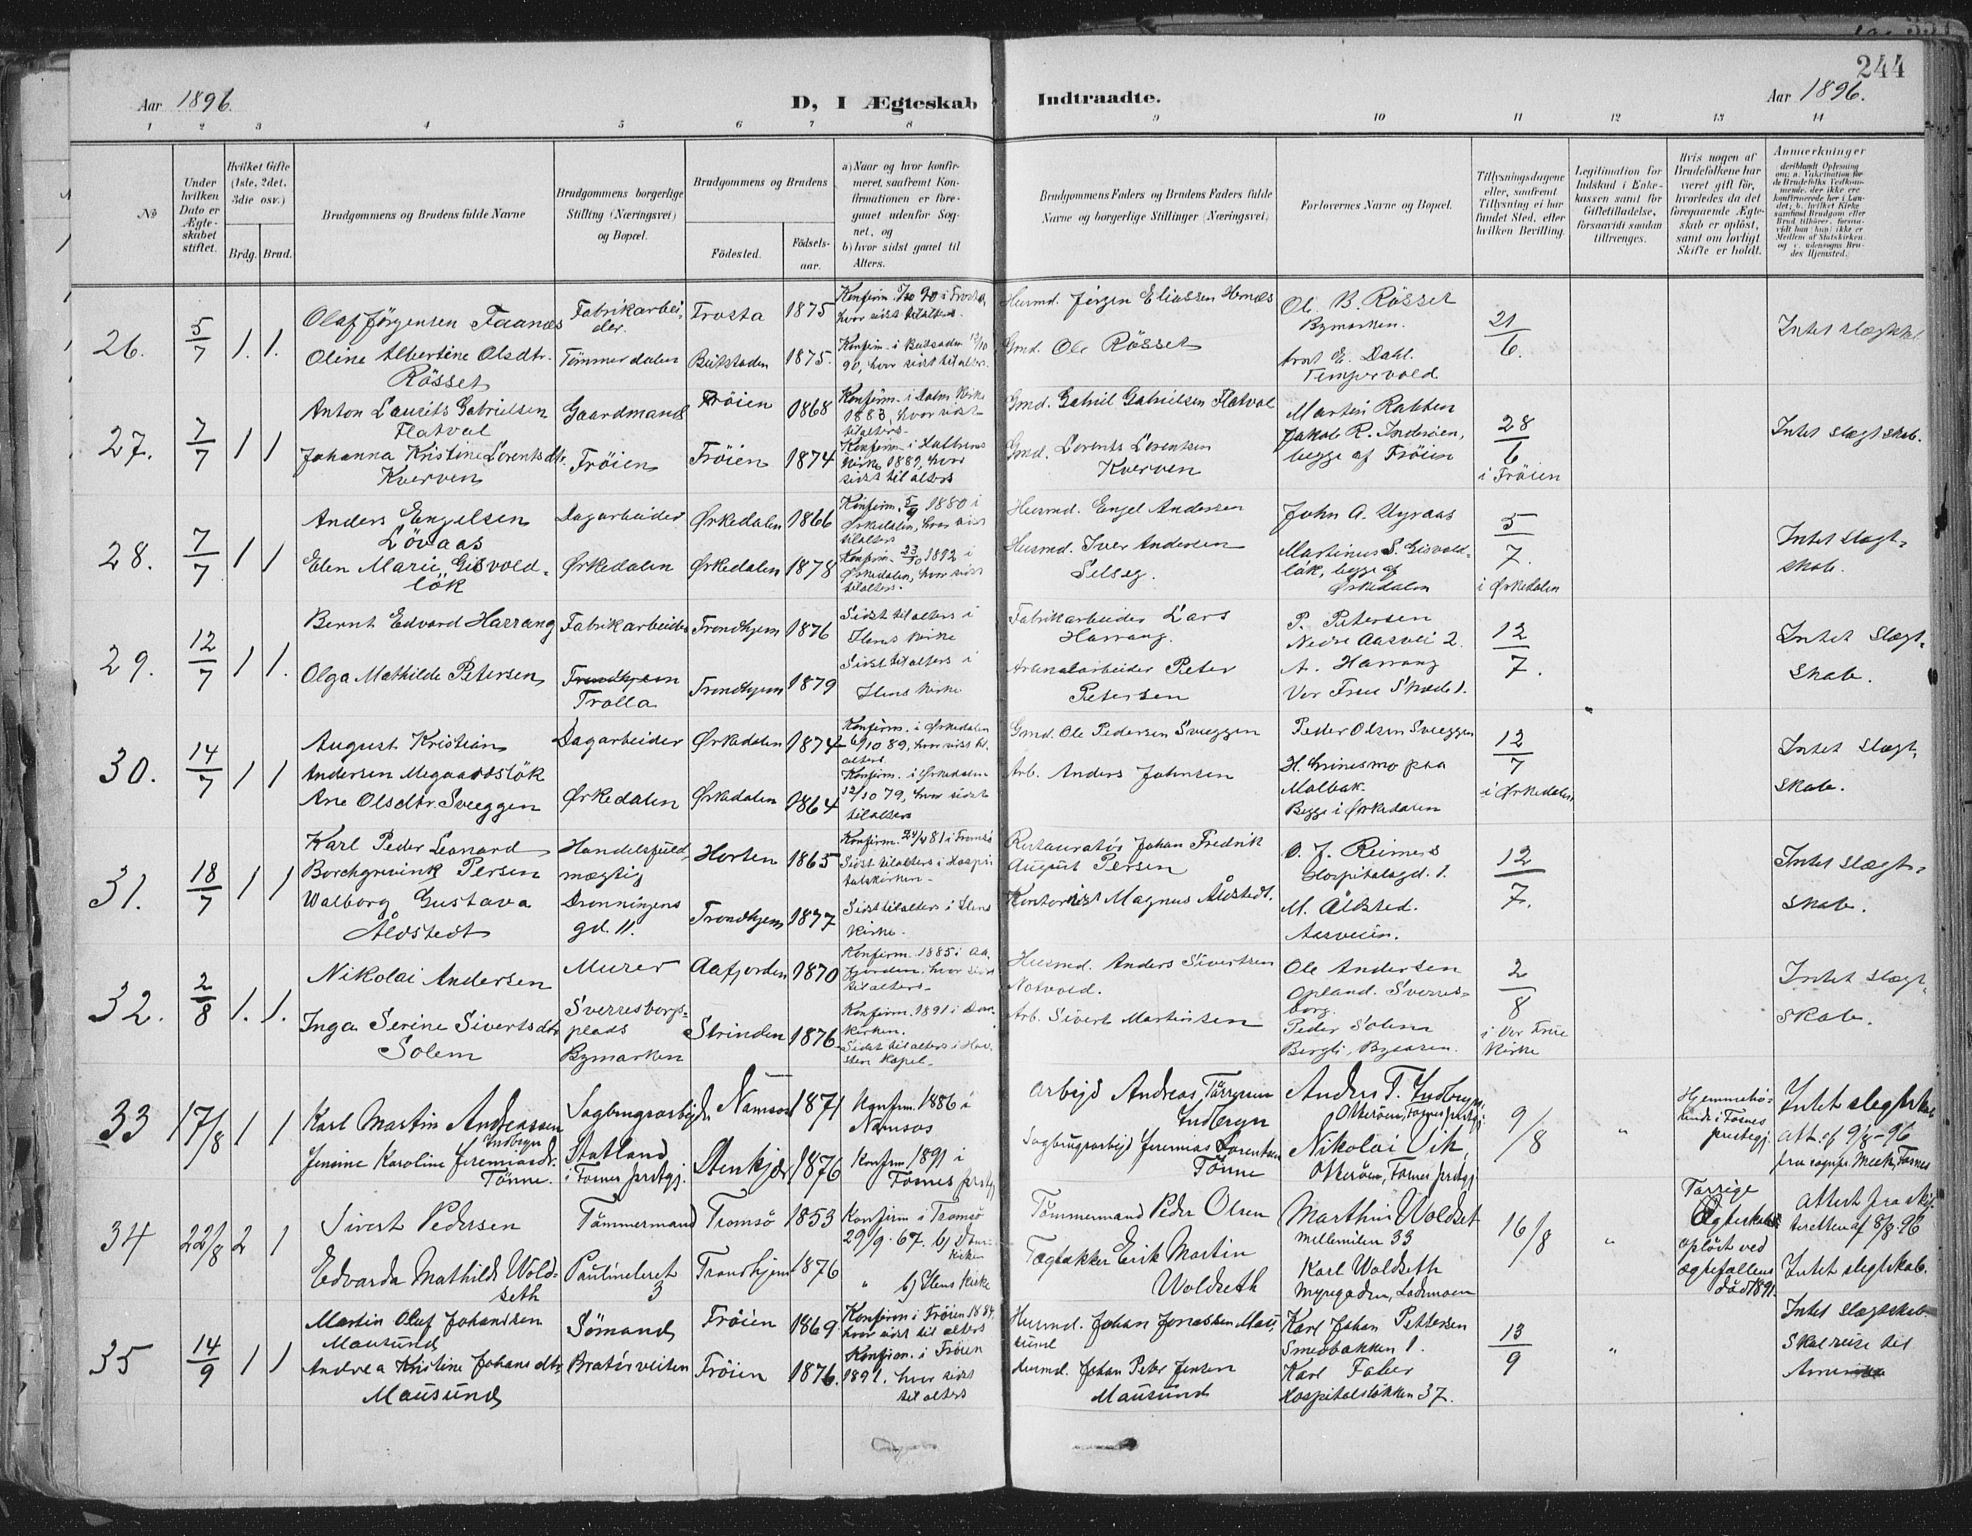 244
Aar 1896.
D, I Ægteskab Indtraadte.
Aar 1896.
1 2 3 4 5 6 7 8 9 10 11 12 13 14
No
Under hvilken Dato er Ægteskabet stiftet.
Hvilket Gifte (1ste, 2det, 3die osv.)
Brdg. Brud.
Brudgommens og Brudens fulde Navne
Brudgommens borgerlige Stilling (Næringsvei) og Bopæl.
Brudgommens og Brudens
Fødested.
Fødselsaar.
a) Naar og hvor konfirmeret, saafremt Konfirmationen er foregaaet udenfor Sognet, og
b) hvor sidst gaaet til Alters.
Brudgommens Faders og Brudens Faders fulde Navne og borgerlige Stillinger (Næringsvei)
Forlovernes Navne og Bopæl.
Tillysningsdagene eller, saafremt Tillysning ei har fundet Sted, efter hvilken Bevilling.
Legitimation for Indskud i Enkekassen samt for Giftetilladelse, forsaavidt saadan tiltrænges.
Hvis nogen af Brudefolkene har været gift før, hvorledes da det foregaaende Ægteskab er opløst, samt om lovligt Skifte er holdt.
Anmærkninger
26. 5/7 1. 1.
Olaf Jørgensen Faanes
Oline Albertine Olsdtr.
Rösset
Fabrikarbeider.
Tömmerdalen
Frosta 1875
Bukstaden 1875.
hvor sidst til alters.
90, hvor sidst til alters.
Husmd. Jörgen Eliassen Hernæs
Gmd. Ole Rösset
Ol. B. Rösset
Bymarken.
Arnt E. Dahl.
Tempervold
21/6.
Intet slægtsk.
27. 7/7 1 1
Anton Laurits Gabrielsen
Flatval
Johanna Kristine Lorentsdtr.
Kverven
Gaardmand
Fröien
Fröien 1868
Fröien 1874
Konfirm. i Kirke
1883, hvor sidst
til alters.
Kirke 1889, hvor
sidst til alters
Gmd. Gabriel Gabrielsen Flatval
Gmd. Lorents Lorentsen
Kverven
Martin Rabben
Jakob R. Inderöien,
begge af Fröien
28/6
i Fröien
Intet slægtskab.
28. 7/7 1 1
Anders Engelsen
Lövaas
Elen Marie Gisvold-
lök
Dagarbeider
Ørkedalen
Ørkedalen 1866
Ørkedalen 1878
Konfirm. 5/9 1880 i
Ørkedalen, hvor sidst
til alters
Konfirm. 23/10 1892 i
Ørkedalen, hvor sidst
til alters.
Husmd. Engel Andersen
Husmd. Iver Andersen
Selseg.
John A. Uyraas
Martinus S. Gisvold-
lök, begge af
Ørkedalen
5/7.
i Ørkedalen
Intet slægt-
skab.
29. 12/7 1 1.
Bernt Edvard Harrang
Olga Mathilde Petersen
Fabrikarbeider
Trondhjem
Trolla
Trondhjem 1876
Trondhjem 1879
Sidst til alters i
Ilens Kirke
Sidst til alters i
Ilens Kirke
Fabrikarbeider Lars
Harrang.
Peter
Petersen
P. Petersen
Nedre Aasvei 2.
A. Harrang
Vor Frue Stræde 1.
12/7.
Intet slægt-
skab.
30. 14/7 1 1
August Kristian
Andersen Megaardslök
Ane Olsdtr. Sveggen
Dagarbeider
Ørkedalen
Ørkedalen 1874
Ørkedalen 1864
Konfirm. i Ørkedalen
6/10 89, hvor sidst til
alters.
Konfirm. i Ørkedalen
12/10 79, hvor sidst
til alters
Gmd. Ole Pedersen Sveggen
Arb. Anders Johnsen
Peder Olsen Sveggen
H. Grinesmo paa
Malbak.
Begge i Ørkedalen
12/7
i Ørkedalen
Intet slægt-
skab.
31. 18/7 1 1
Karl Peder Leonard
Borchgrevink Persen
Walborg Gustava
Åldstedt
Handelsfuld-
mægtig
Dronningens
gd. 11.
Horten 1865
Trondhjem 1877
Konfirm. 24/4 81 i Tromsö
Sidst til alters i Hospi-
talskirken.
Sidst til alters i Ilens
Kirke.
Restauratör Johan Fredrik
August Persen
Kontorist Magnus Åldstedt.
O. J. Reimers
Hospitalsgd. 1.
M. Åldsted.
Aasveien.
12/7.
Intet slægt-
skab.
32. 2/8 1. 1.
Nikolai Andersen
Inga Serine Sivertsdtr
Solem
Murer
Sverresborgs-
plads
Bymarken
Aafjorden 1870
Strinden 1876.
Konfirm. 1885 i Aa-
fjorden, hvor sidst
til alters.
Konfirm. 1891 i Dom-
kirken.
Sidst til alters i Hav-
stein Kapel.
Husmd. Anders Sivertsen
Notvold.
Arb. Sivert Martinsen
Ole Andersen
Opland. Sverres-
borg.
Peder Solem
Bergli, Byaasen.
2/8
i Vor Frue
Kirke
Intet slægt-
skab.
33 17/8 1 1
Karl Martin Andreassen
Indbryn
Jensine Karoline Jeremiasdr.
Tönne.
Sagbrugsarbejd.
Statland
i Fosnes prstgj.
Namsos 1871
Stenkjær 1876
Konfrm. 1886 i
Namsos
Konfrm. 1891 i
Fosnes prstgj
Arbejd Andreas Törrisen
Indbryn
Sagbrugsarbejd Jeremias Lorentsen
Tönne
Anders T. Indbryn,
Otteröen, Fosnes prstgj.
Nikolai Vik,
Otteröen, Fosnes prstgj.
9/8
"
Hjemmehö-
rende i Fosnes
prestegj.
Intet slegtskab
Att. af 9/8-96
fra sognepr. Meek, Fosnes
34 22/8 2 1
Sivert Pedersen
Edvarda Mathilde Wold-
seth
Tömmermand
Paulineleret
3
Tromsö 1853
Trondhjem 1876
Konfirm i Tromsö
29/9 67. b) Dom-
kirken
" b) Ilens Kirke
Tömmermand Peder Olsen
Tægtækker Erik Martin
Woldseth
Marthin Woldset
Mellemilen 33
Karl Woldseth
Myrgaden, Lademoen
16/8
"
Forrige
Ægteskab
oplöst ved
ægtefællens
död 1891.
Attest fra skif-
teretten af 8/8 96
Intet slegtskab.
35 14/9 1 1
Martin Oluf Johansen
Mausund
Andrea Kristine Johansdtr
Mausund
Sömand
Bratörveiten
Fröien 1869
Fröien 1876.
Konfirm i Fröien 1884,
hvor sidst til alters
Konfirm. i Fröien
1891, hvor sidst
til alters
Husmd. Johan Jonassen Mau-
sund
Husmd. Johan Peter Jensen
Mausund
Karl Johan Pettersen
Smedbakken 1.
Karl Faber
Hospitalslökken 37.
13/9
"
Intet slægtskab
Skal reise til
Amerika